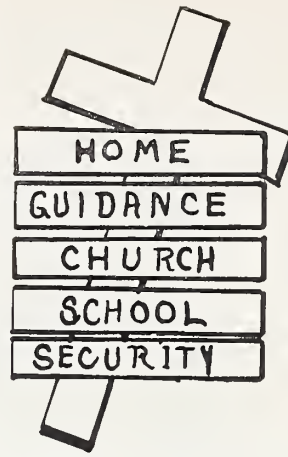 HOME
GUIDANCE
CHURCH
SCHOOL
SECURITY